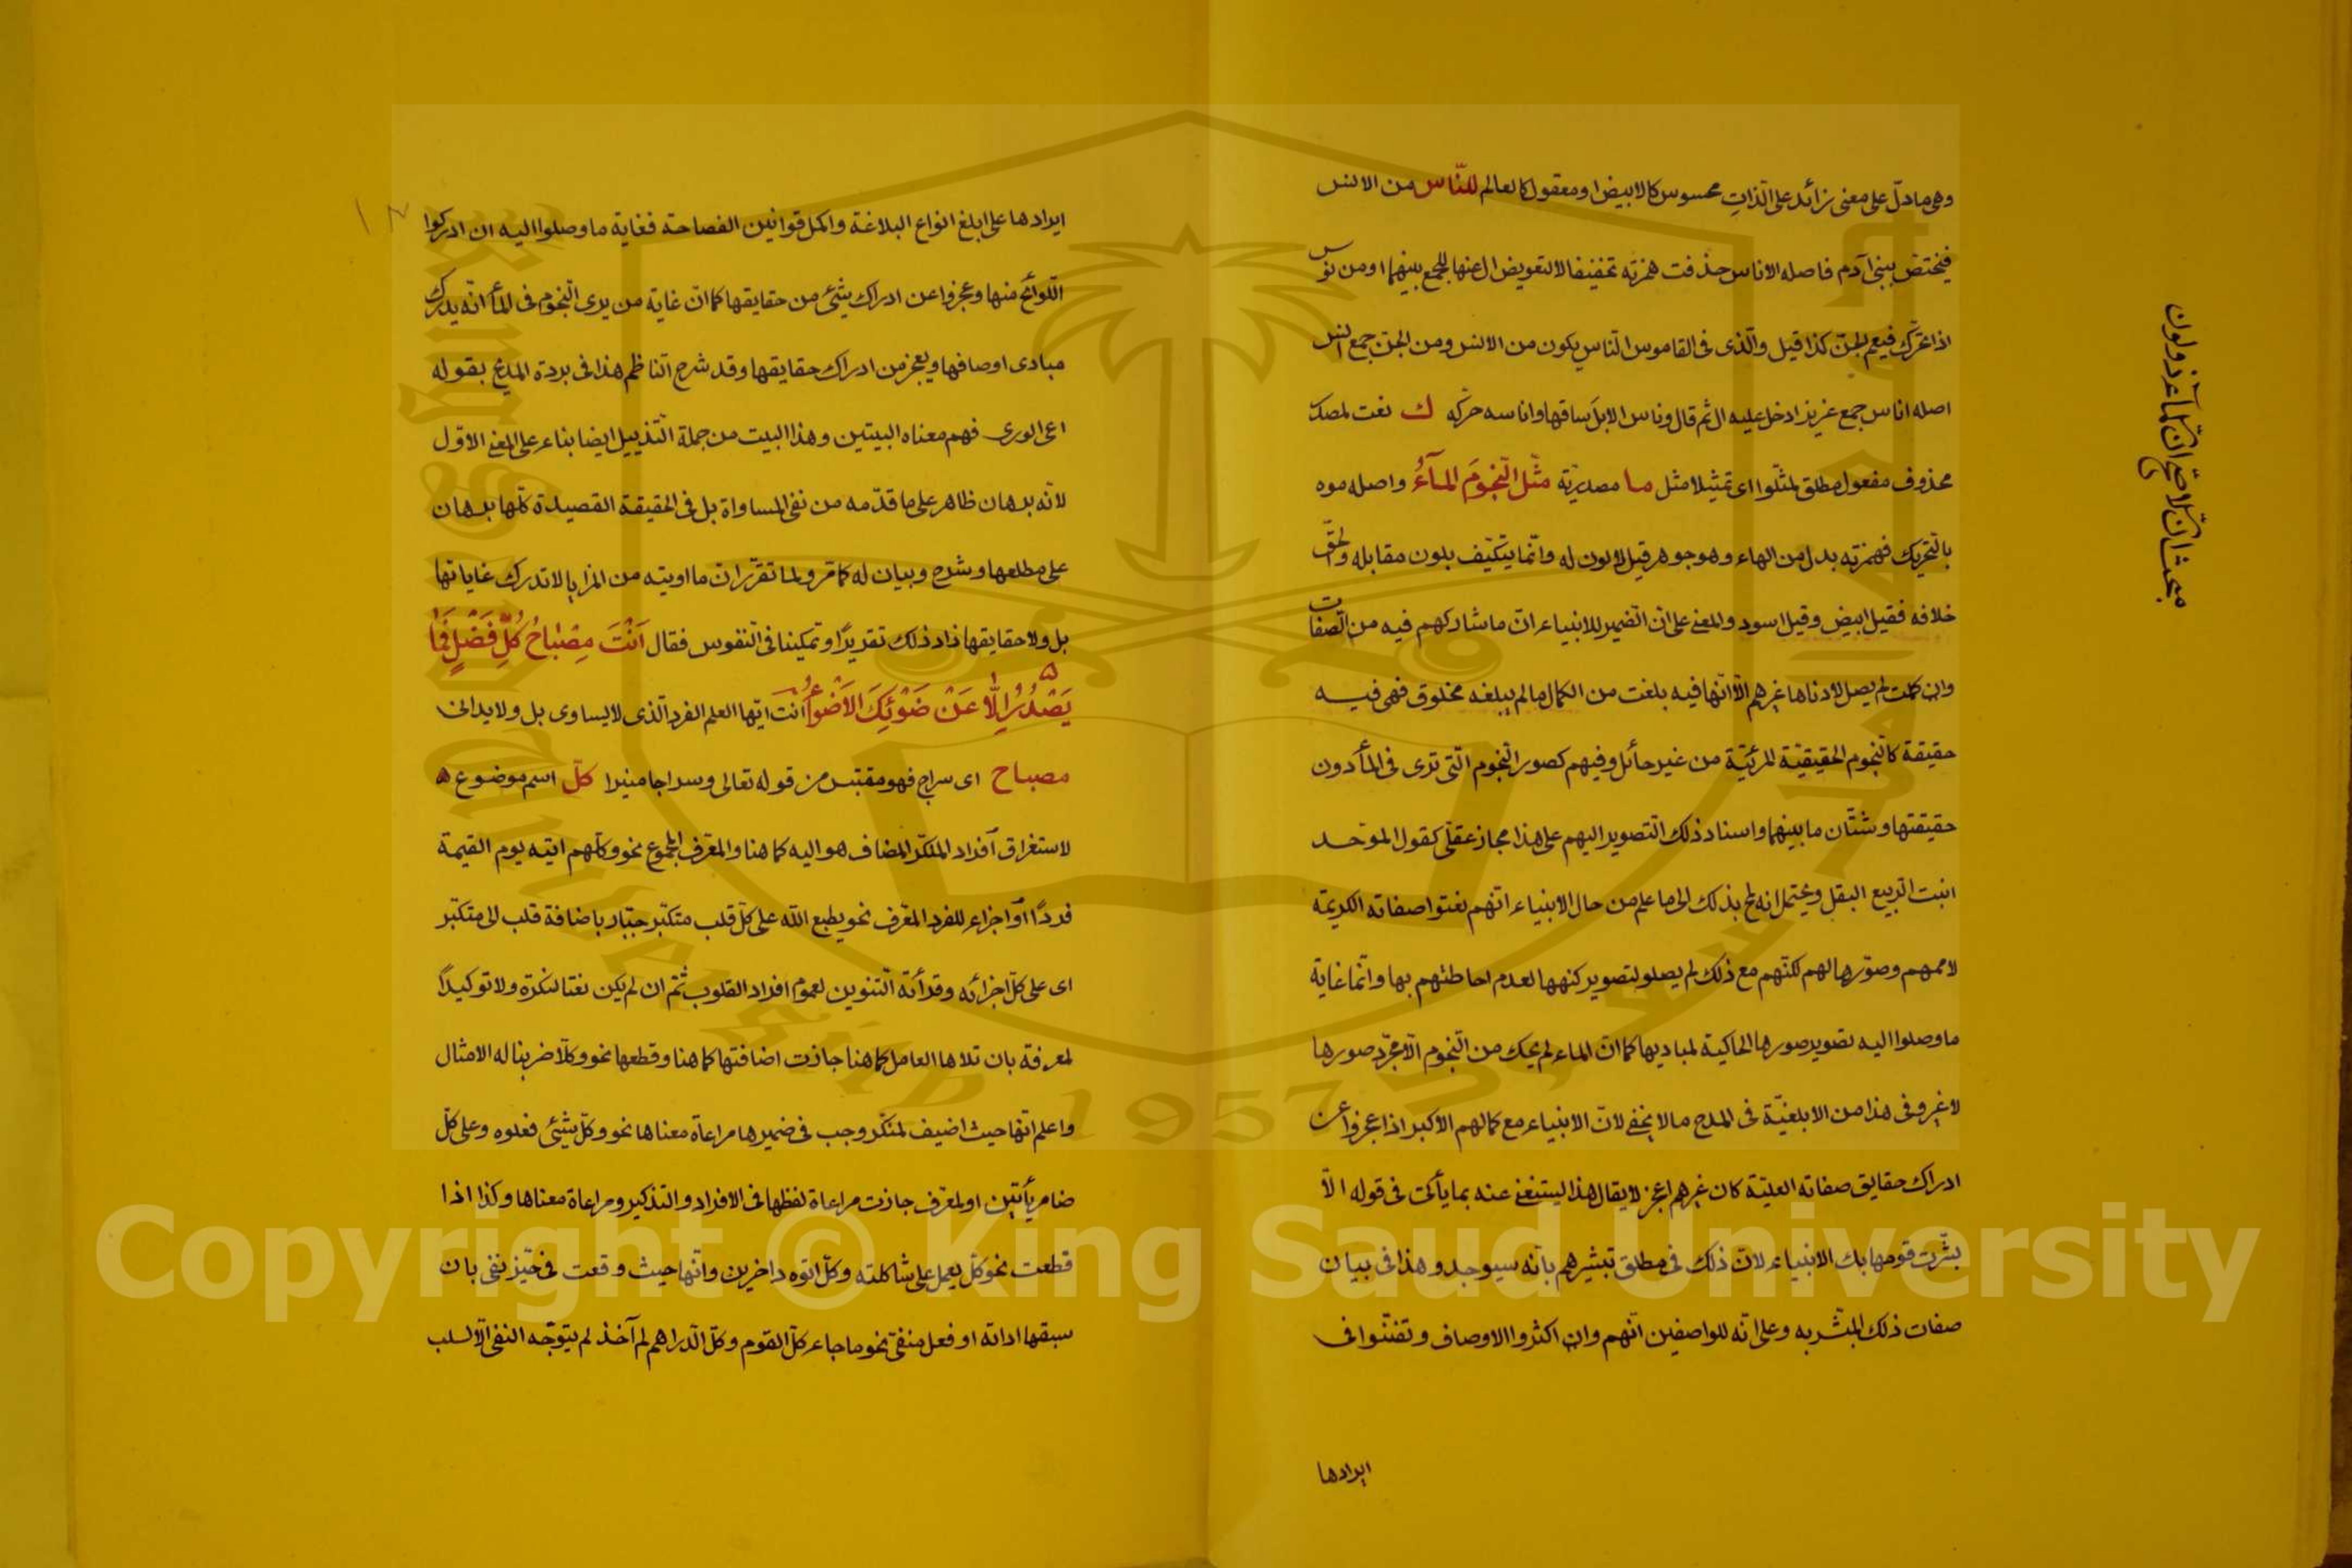 وهى مادلّ على معنى زائد على الذات محسوس كالابيض او معقول كالعالم للنّاس من الانس
فيختص ببنى آدم فاصله الاناس حذفت همزته تخفيفا لا لتعويض ال عنها للجمع بينهما او من نوس
اذا تحرك فيعم الجنّ كذا قيل والّذى فى القاموس النّاس يكون من الانس ومن الجن جمع انس
اصله اناس جمع عزيز ادخل عليه ال ثم قال وناس الابل ساقها واناسه حركه ك نعت لمصدر
محذوف مفعول مطلق لمثّلوا اى تمثيلا مثل ما مصدريّة مثّل النّجومَ المآءُ واصله موه
بالتّحريك فهمزته بدل من الهاء وهو جوهر قيل لا لون له وانّما يتكيّف بلون مقابله والحقّ
خلافه فقيل ابيض وقيل اسود والمعنى على انّ الضمير للانبياء انّ ما شاركهم فيه من الصّفات
وان كملت لم يصل لادناها غيرهم الّا انّها فيه بلغت من الكمال ما لم يبلغه مخلوق فهى فيه
حقيقة كالنّجوم الحقيقيّة المرئيّة من غير حائل وفيهم كصور النّجوم الّتى ترى فى المآء دون
حقيقتها وشتّان ما بينهما واسناد ذلك التّصوير اليهم على هذا مجاز عقلّى كقول الموحد
انبت الرّبيع البقل ويحتمل انه لمح بذلك الى ما علم من حال الانبياء انّهم نعتوا صفاته الكريمة
لاممهم وصوّرها لهم لكنّهم مع ذلك لم يصلوا لتصوير كنهها لعدم احاطتهم بها وانّما غاية
ما وصلوا اليه تصوير صورها الحاكية لمباديها كما انّ الماء لم يحك من النّجوم الّا مجرّد صورها
لا غير وفى هذا من الابلغيّة فى المدح ما لا يخفى لانّ الانبياء مع كمالهم الاكبر اذا عجزوا عن
ادراك حقايق صفاته العليّة كان غيرهم اعجز لا يقال هذا ليستغنى عنه بما يأتى فى قوله الّا
بشّرت قومها بك الانبياء لانّ ذلك فى مطلق تبشيرهم بانّه سيوجد وهذا فى بيان
صفات ذلك المبشّر به وعلى انّه للواصفين انّهم وان اكثروا الاوصاف وتفنّنوا فى
ايرادها
مبحث انّ الاصحّ انّ للمآء ذو لون
ايرادها على ابلغ انواع البلاغة واكمل قوانين الفصاحة فغاية ما وصلوا اليه ان ادركوا
اللّوائح منها وعجزوا عن ادراك شئ من حقايقها كما انّ غاية من يرى النّجوم فى المآء انّه يدرك
مبادى اوصافها ويعجز من ادراك حقايقها وقد شرح النّاظم هذا فى بردة المديح بقوله
اعى الورى فهم معناه البيتين وهذا البيت من جملة التّذييل ايضا بناء على المعنى الاوّل
لانّه برهان ظاهر على ما قدّمه من نفى المساواة بل فى الحقيقة القصيدة كلّها برهان
على مطلعها وشرح وبيان له كما مرّ ولما تقرّر انّ ما اوتيه من المزايا لا تدرك غاياتها
بل ولا حقايقها زاد ذلك تقديرًا وتمكينا فى النّفوس فقال اَنْتَ مِصْبَاحُ كُلِّ فَضْلٍ فَمَا
يَصْدُرُ اِلَّا عَنْ ضَوْئِكَ الْاَضْوَاءُ انت ايّها العلم الفرد الّذى لا يساوى بل ولا يدانى
مصباح اى سراج فهو مقتبس من قوله تعالى وسراجا منيرا كلّ اسم موضوع
لاستغراق افراد المنكّر المضاف هو اليه كما هنا والمعّرف المجموع نحو وكلّهم اتيه يوم القيمة
فردًا او اجزاء للفرد المعّرف نحو يطبع الله على كلّ قلب متكبّر جبّار باضافة قلب الى متكبّر
اى على كلّ اجزائه وقرأته التّنوين لعموم افراد القلوب ثمّ ان لم يكن نعتا لنكرة ولا توكيدًا
لمعرفة بان تلاها العامل كما هنا جازت اضافتها كما هنا وقطعها نحو وكلّا ضربنا له الامثال
واعلم انّها حيث اضيف لمنكّر وجب فى ضميرها مراعاة معناها نحو وكلّ شئ فعلوه وعلى كلّ
ضامر يأتين او لمعّرف جازت مراعاة لفظها فى الافراد والتذكير ومراعاة معناها وكذا اذا
قطعت نحو كلّ يعمل على شاكلته وكلّ اتوه داخرين وانّها حيث وقعت فى حيّز نفى بان
سبقها اداته او فعل منفى نحو ما جاء كلّ القوم وكلّ الدّراهم لم آخذ لم يتوجّه النفى الّا لسلب
Copyright © King Saud University
1957